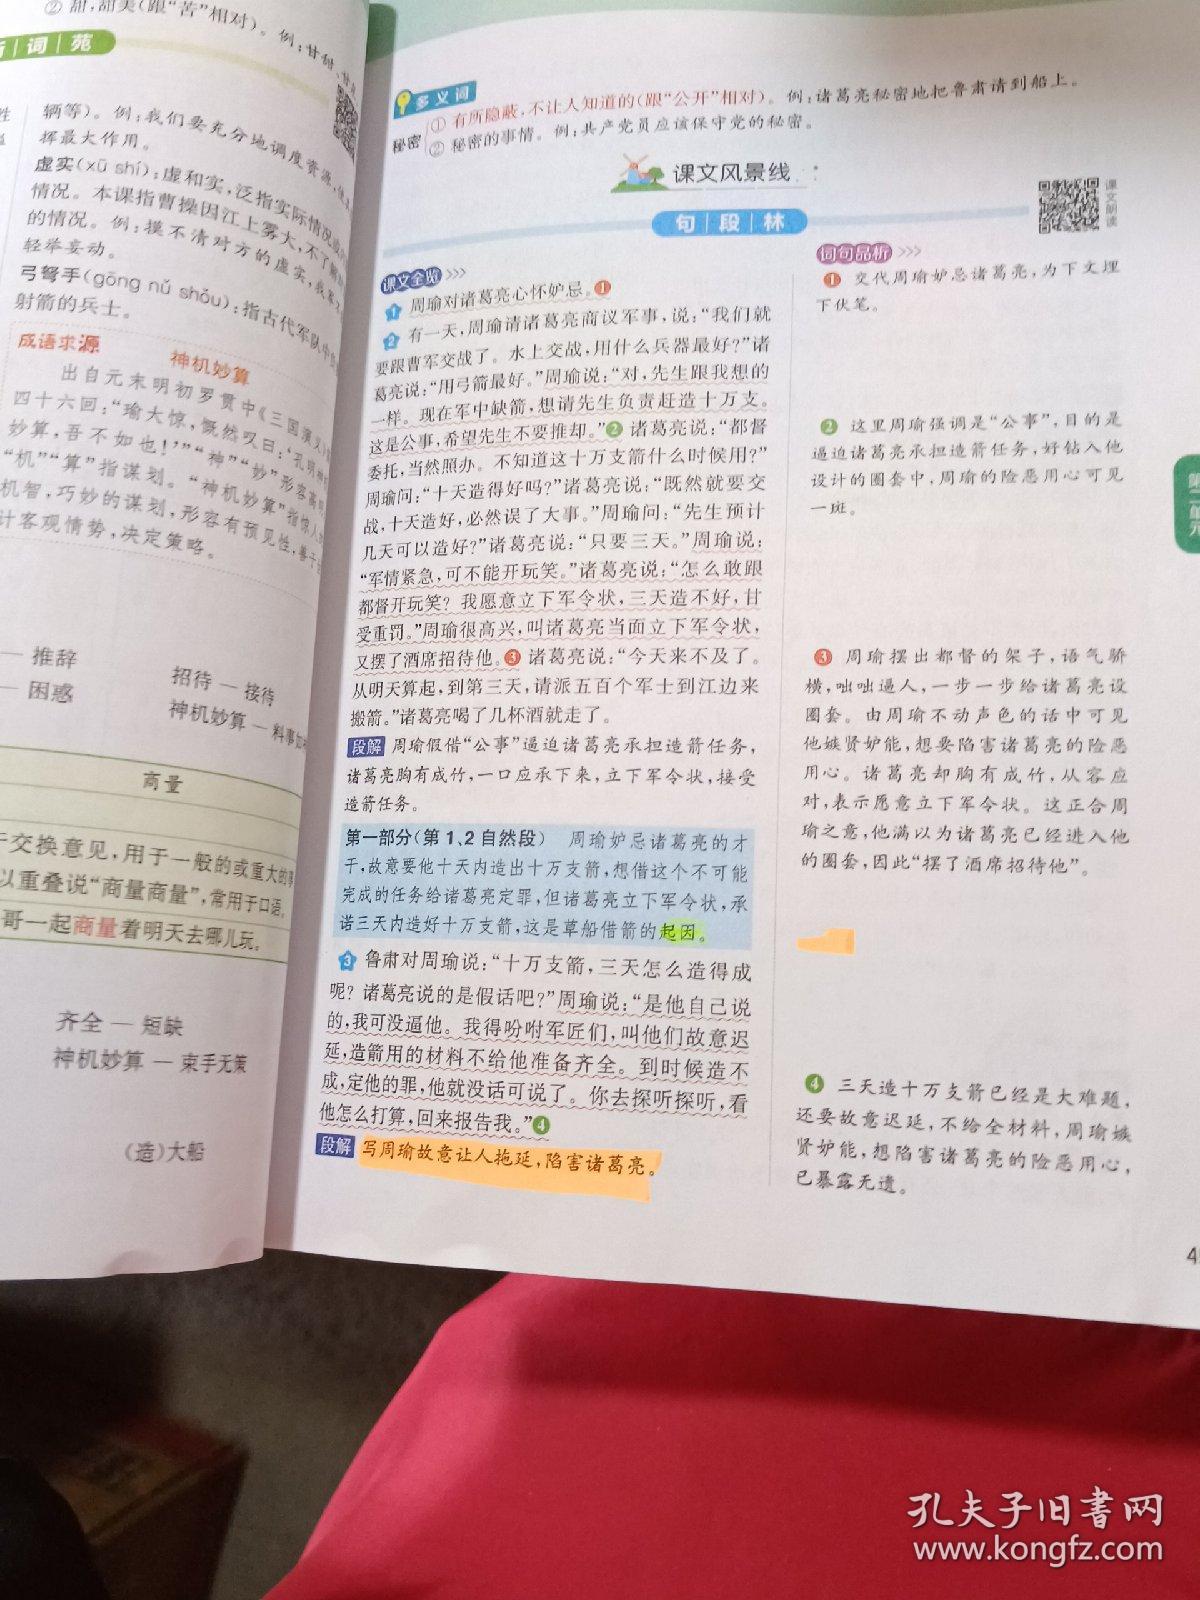 ② 甜,甜美(跟“苦”相对)。例:甘甜、甘
词 苑
辆等)。例:我们要充分地调度资源,
挥最大作用。
虚实(xū shí):虚和实,泛指实际情况或
情况。本课指曹操因江上雾大,不了解
的情况。例:摸不清对方的虚实,我军不
轻举妄动。
弓弩手(gōng nǔ shǒu):指古代军队中
射箭的兵士。
成语求源
神机妙算
出自元末明初罗贯中《三国演义》
四十六回:“瑜大惊,慨然叹曰:‘孔明神机
妙算,吾不如也!’”“神”“妙”形容高明
“机”“算”指谋划。“神机妙算”指惊人的
机智,巧妙的谋划,形容有预见性,善于
计客观情势,决定策略。
— 推辞
招待 — 接待
— 困惑
神机妙算 — 料事如神
商量
交换意见,用于一般的或重大的事
以重叠说“商量商量”,常用于口语。
哥一起商量着明天去哪儿玩。
齐全 — 短缺
神机妙算 — 束手无策
(造)大船
多义词
秘密
① 有所隐蔽,不让人知道的(跟“公开”相对)。例:诸葛亮秘密地把鲁肃请到船上。
② 秘密的事情。例:共产党员应该保守党的秘密。
课文风景线
句 段 林
课文朗读
课文全览
1 周瑜对诸葛亮心怀妒忌。1
2 有一天,周瑜请诸葛亮商议军事,说:“我们就
要跟曹军交战了。水上交战,用什么兵器最好?”诸
葛亮说:“用弓箭最好。”周瑜说:“对,先生跟我想的
一样。现在军中缺箭,想请先生负责赶造十万支。
这是公事,希望先生不要推却。”2 诸葛亮说:“都督
委托,当然照办。不知道这十万支箭什么时候用?”
周瑜问:“十天造得好吗?”诸葛亮说:“既然就要交
战,十天造好,必然误了大事。”周瑜问:“先生预计
几天可以造好?”诸葛亮说:“只要三天。”周瑜说:
“军情紧急,可不能开玩笑。”诸葛亮说:“怎么敢跟
都督开玩笑?我愿意立下军令状,三天造不好,甘
受重罚。”周瑜很高兴,叫诸葛亮当面立下军令状,
又摆了酒席招待他。3 诸葛亮说:“今天来不及了。
从明天算起,到第三天,请派五百个军士到江边来
搬箭。”诸葛亮喝了几杯酒就走了。
段解 周瑜假借“公事”逼迫诸葛亮承担造箭任务,
诸葛亮胸有成竹,一口应承下来,立下军令状,接受
造箭任务。
第一部分(第1、2自然段) 周瑜妒忌诸葛亮的才
干,故意要他十天内造出十万支箭,想借这个不可能
完成的任务给诸葛亮定罪,但诸葛亮立下军令状,承
诺三天内造好十万支箭,这是草船借箭的起因。
3 鲁肃对周瑜说:“十万支箭,三天怎么造得成
呢?诸葛亮说的是假话吧?”周瑜说:“是他自己说
的,我可没逼他。我得吩咐军匠们,叫他们故意迟
延,造箭用的材料不给他准备齐全。到时候造不
成,定他的罪,他就没话可说了。你去探听探听,看
他怎么打算,回来报告我。”4
段解 写周瑜故意让人拖延,陷害诸葛亮。
词句品析
1 交代周瑜妒忌诸葛亮,为下文埋
下伏笔。
2 这里周瑜强调是“公事”,目的是
逼迫诸葛亮承担造箭任务,好钻入他
设计的圈套中,周瑜的险恶用心可见
一斑。
3 周瑜摆出都督的架子,语气骄
横,咄咄逼人,一步一步给诸葛亮设
圈套。由周瑜不动声色的话中可见
他嫉贤妒能,想要陷害诸葛亮的险恶
用心。诸葛亮却胸有成竹,从容应
对,表示愿意立下军令状。这正合周
瑜之意,他满以为诸葛亮已经进入他
的圈套,因此“摆了酒席招待他”。
4 三天造十万支箭已经是大难题,
还要故意迟延,不给全材料,周瑜嫉
贤妒能,想陷害诸葛亮的险恶用心,
已暴露无遗。
孔夫子旧书网
www.kongfz.com